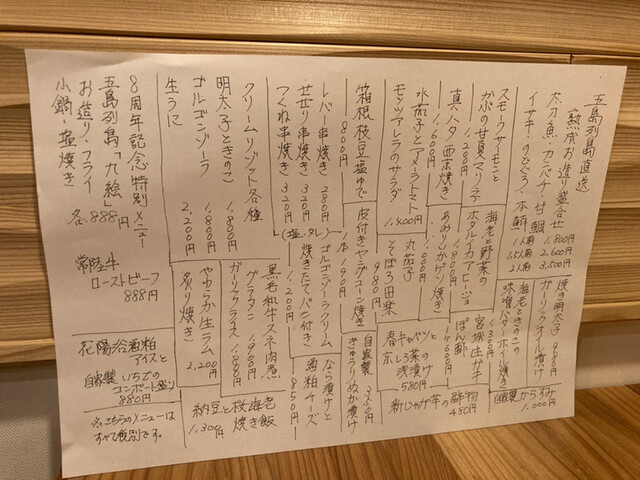 五島列島直送
熟成お造り盛合せ
太刀魚・カンパチ・甘鯛
イサキ・のどぐろ・本鮪
1人前 1,800円
1.5人前 2,600円
2人前 3,500円
焼き明太子 980円
ガーリックオイル漬け
海老ときのこの
味噌バターホイル焼き
1,300円
自家製からすみ
1,000円
スモークサーモンと
かぶの甘夏マリネ
1,280円
海老と野菜の
ホタルイカアヒージョ
1,800円
宮城生ガキ
ぽん酢
真ハタ西京焼き
1,600円
あおりいかゲソ焼き
1,000円
水茄子とフルーツトマト
モッツァレラのサラダ
1,400円
丸茄子
そぼろ田楽
980円
春キャベツと
浅漬け
580円
新じゃが芋の
480円
箱根枝豆塩ゆで
800円
皮付きヤングコーン焼き
1本 190円
自家製
きゅうりぬか漬け
350円
レバー串焼き 280円
せせり串焼き 320円
つくね串焼き 320円
(塩・タレ)
ゴルゴンゾーラクリーム
焼きたてパン付き
1,200円
なら漬けと
酒粕チーズ
850円
クリームリゾット各種
明太子ときのこ
1,800円
ゴルゴンゾーラ
1,800円
生うに
2,200円
黒毛和牛スネ肉煮
グラタン
ガーリックライス
やわらか生ラム
炙り焼き
2,200円
納豆と桜海老
焼き飯
1,300円
8周年記念特別メニュー
五島列島「九絵」
お造り・フライ
小鍋・塩焼き
各888円
常陸牛
ローストビーフ
888円
花陽浴酒粕
アイスと
自家製いちごの
コンポート盛り
880円
※こちらのメニューは
すべて税別です。